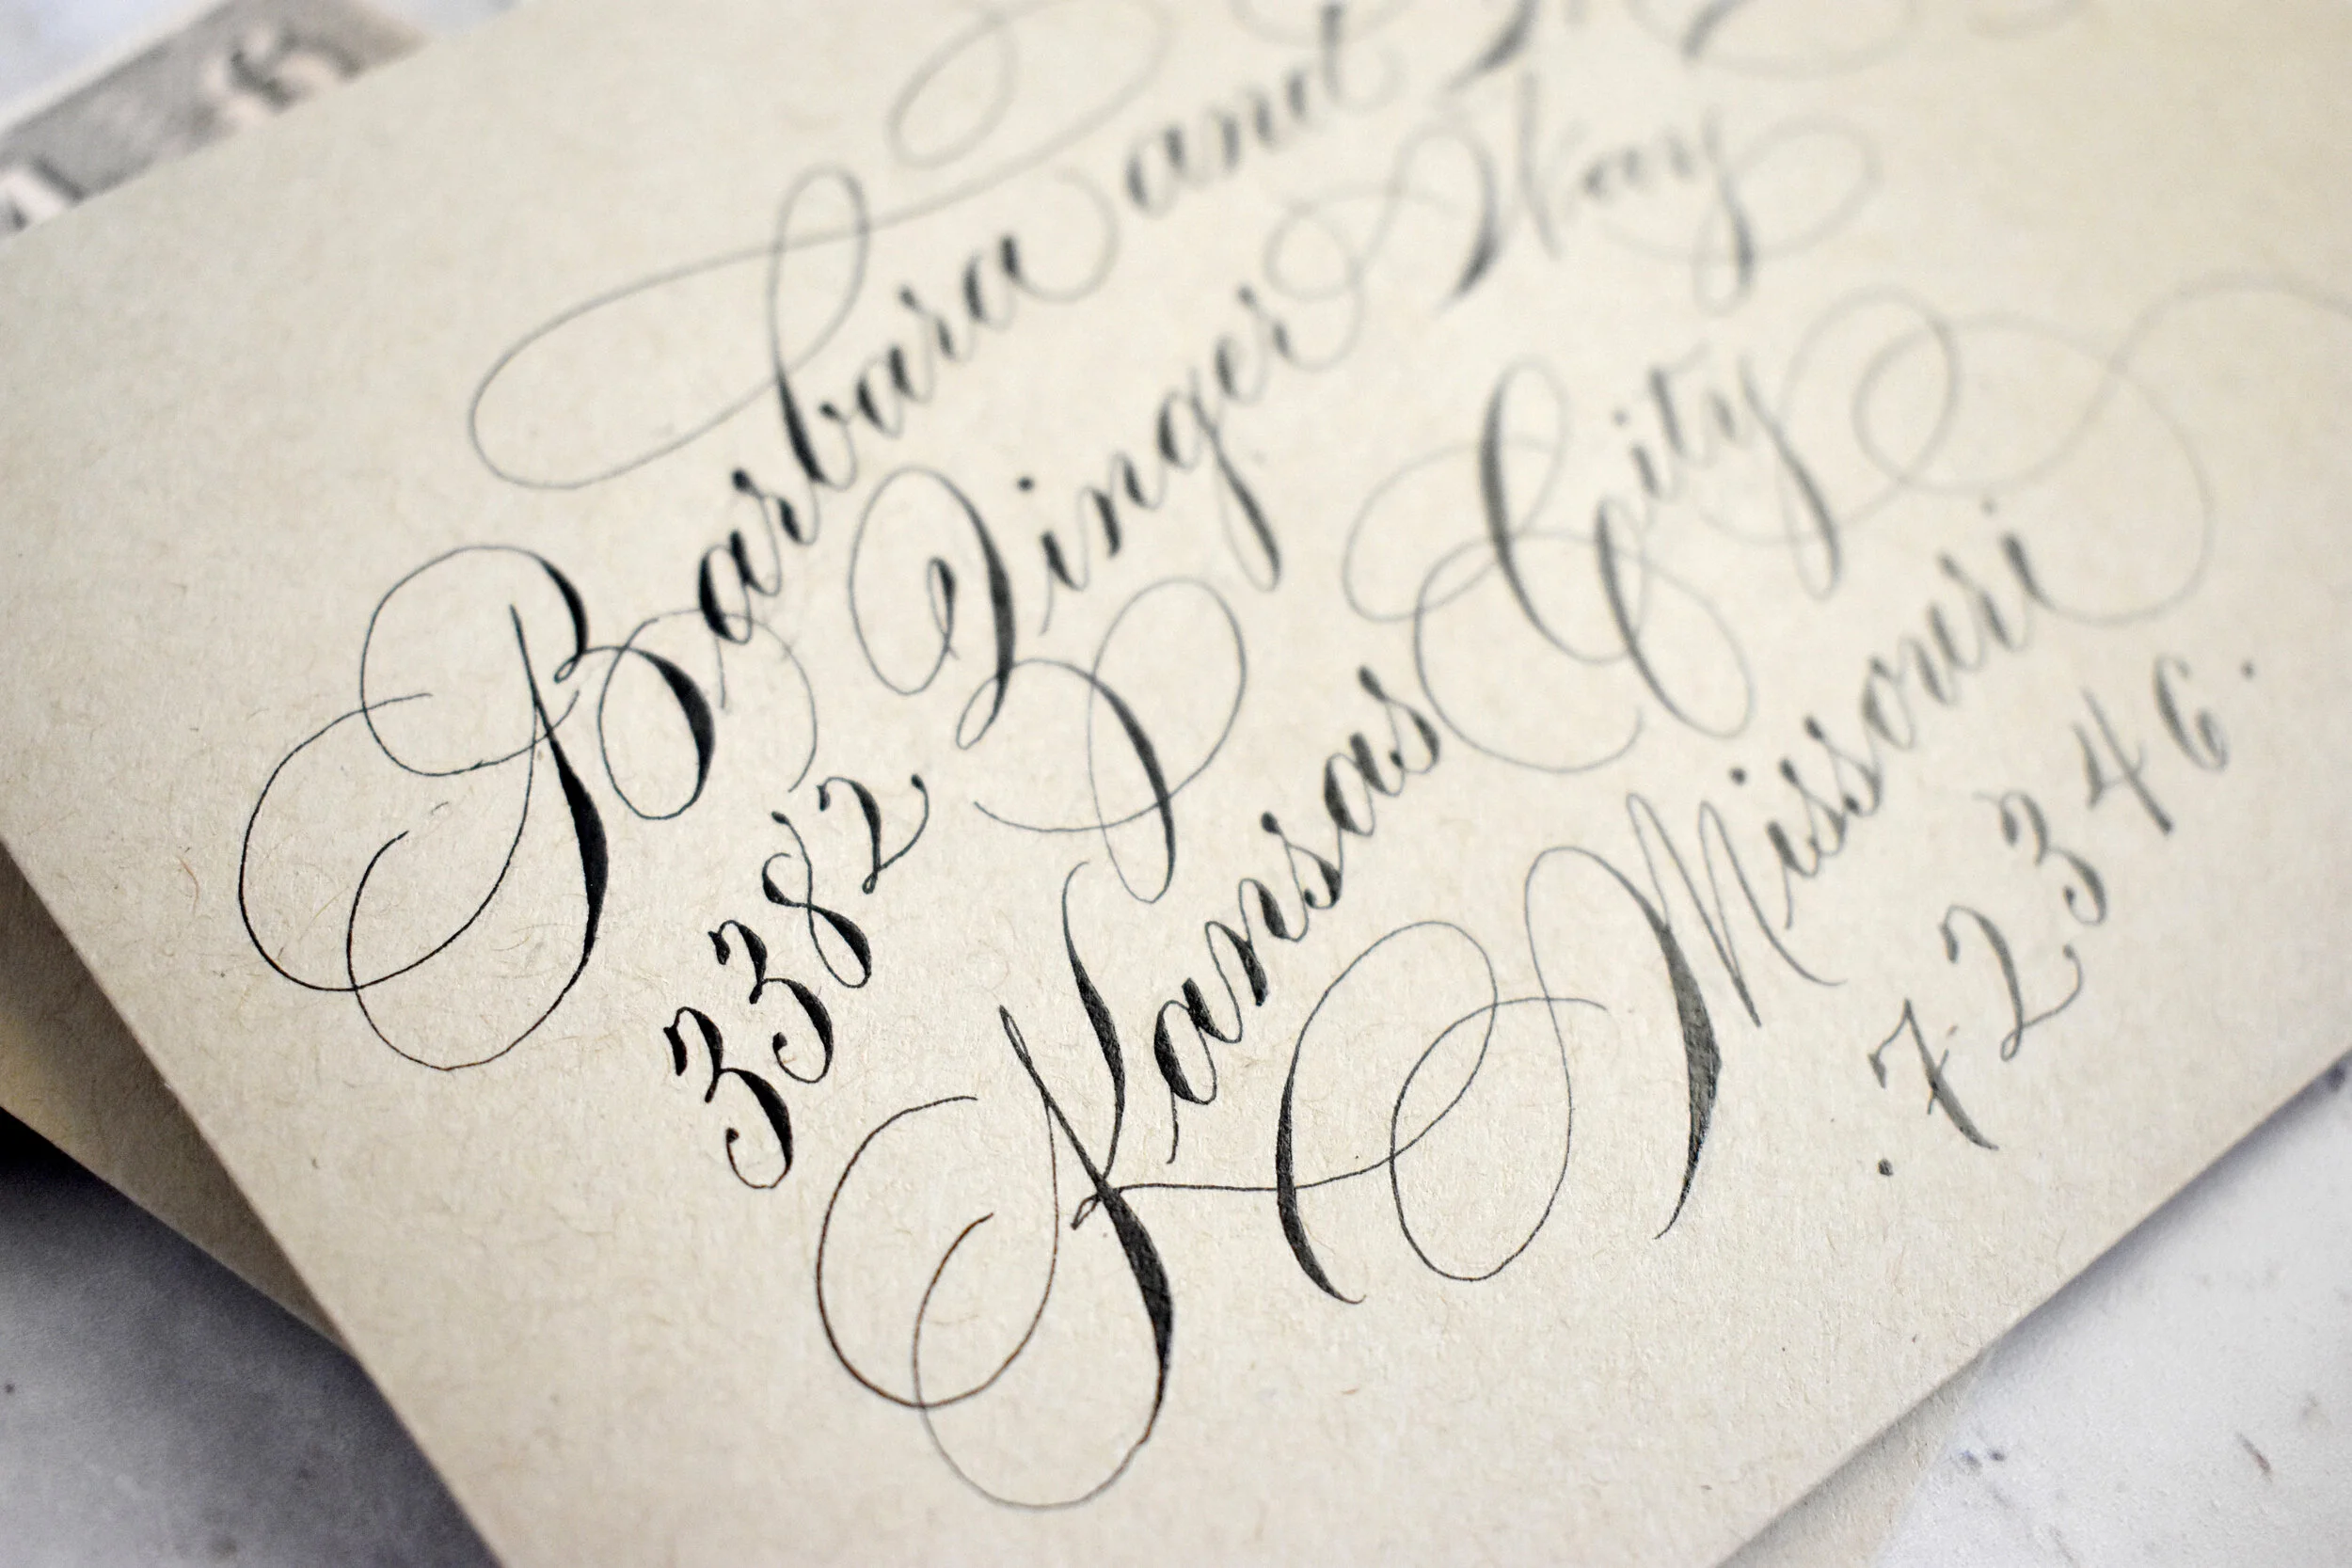 Barbara and
382 Zinger Way
Kansas City
Missouri
.72346.